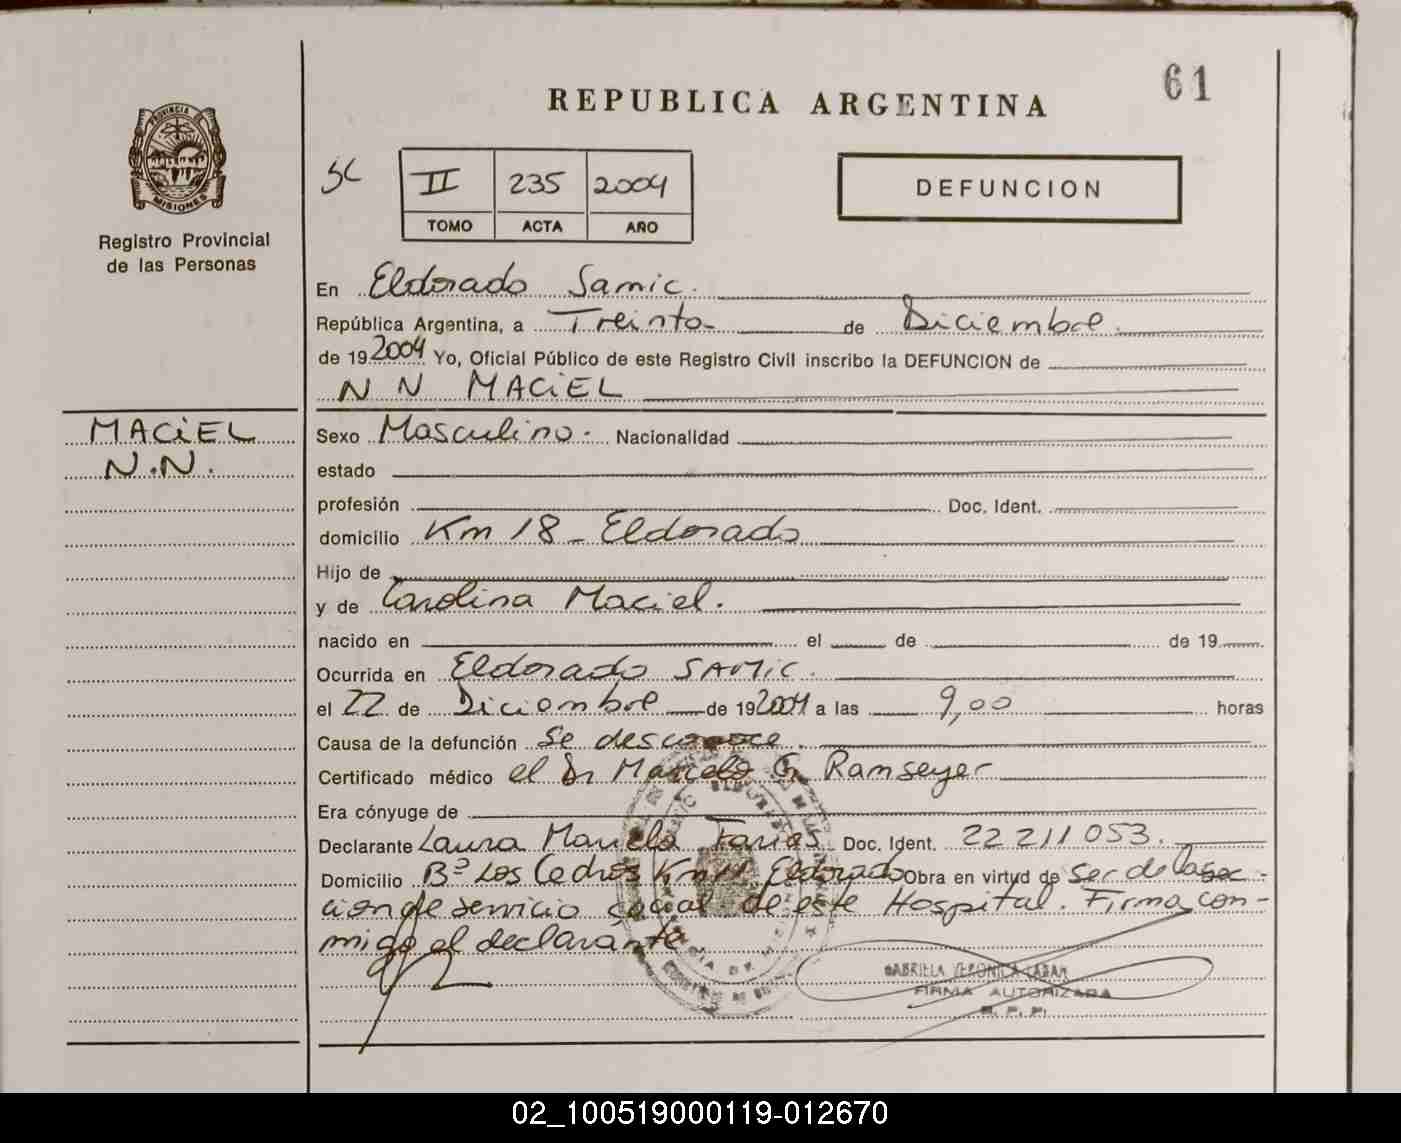 61
REPUBLICA ARGENTINA
PROVINCIA DE
MISIONES
Registro Provincial
de las Personas
SC
II 235 2004
TOMO ACTA AÑO
DEFUNCION
En Eldorado Samic.
República Argentina, a Treinta de Diciembre.
de 19 2004 Yo, Oficial Público de este Registro Civil inscribo la DEFUNCION de
N N MACiEL
MACiEL
N.N.
Sexo Masculino. Nacionalidad
estado
profesión Doc. Ident.
domicilio Km 18 - Eldorado
Hijo de
y de Carolina Maciel.
nacido en el de de 19
Ocurrida en Eldorado SAMIC.
el 22 de Diciembre de 19 2004 a las 9,00 horas
Causa de la defunción Se desconoce.
Certificado médico el Dr Marcelo G Ramseyer
Era cónyuge de
Declarante Laura Mariela Farias Doc. Ident. 22 211 053.
Domicilio Bº Los Cedros Km 11 Eldorado Obra en virtud de Ser de la sec-
cion de servicio social de este Hospital. Firma con-
migo el declarante
GABRIELA VERONICA
FIRMA AUTORIZADA
R. P. P.
02_100519000119-012670